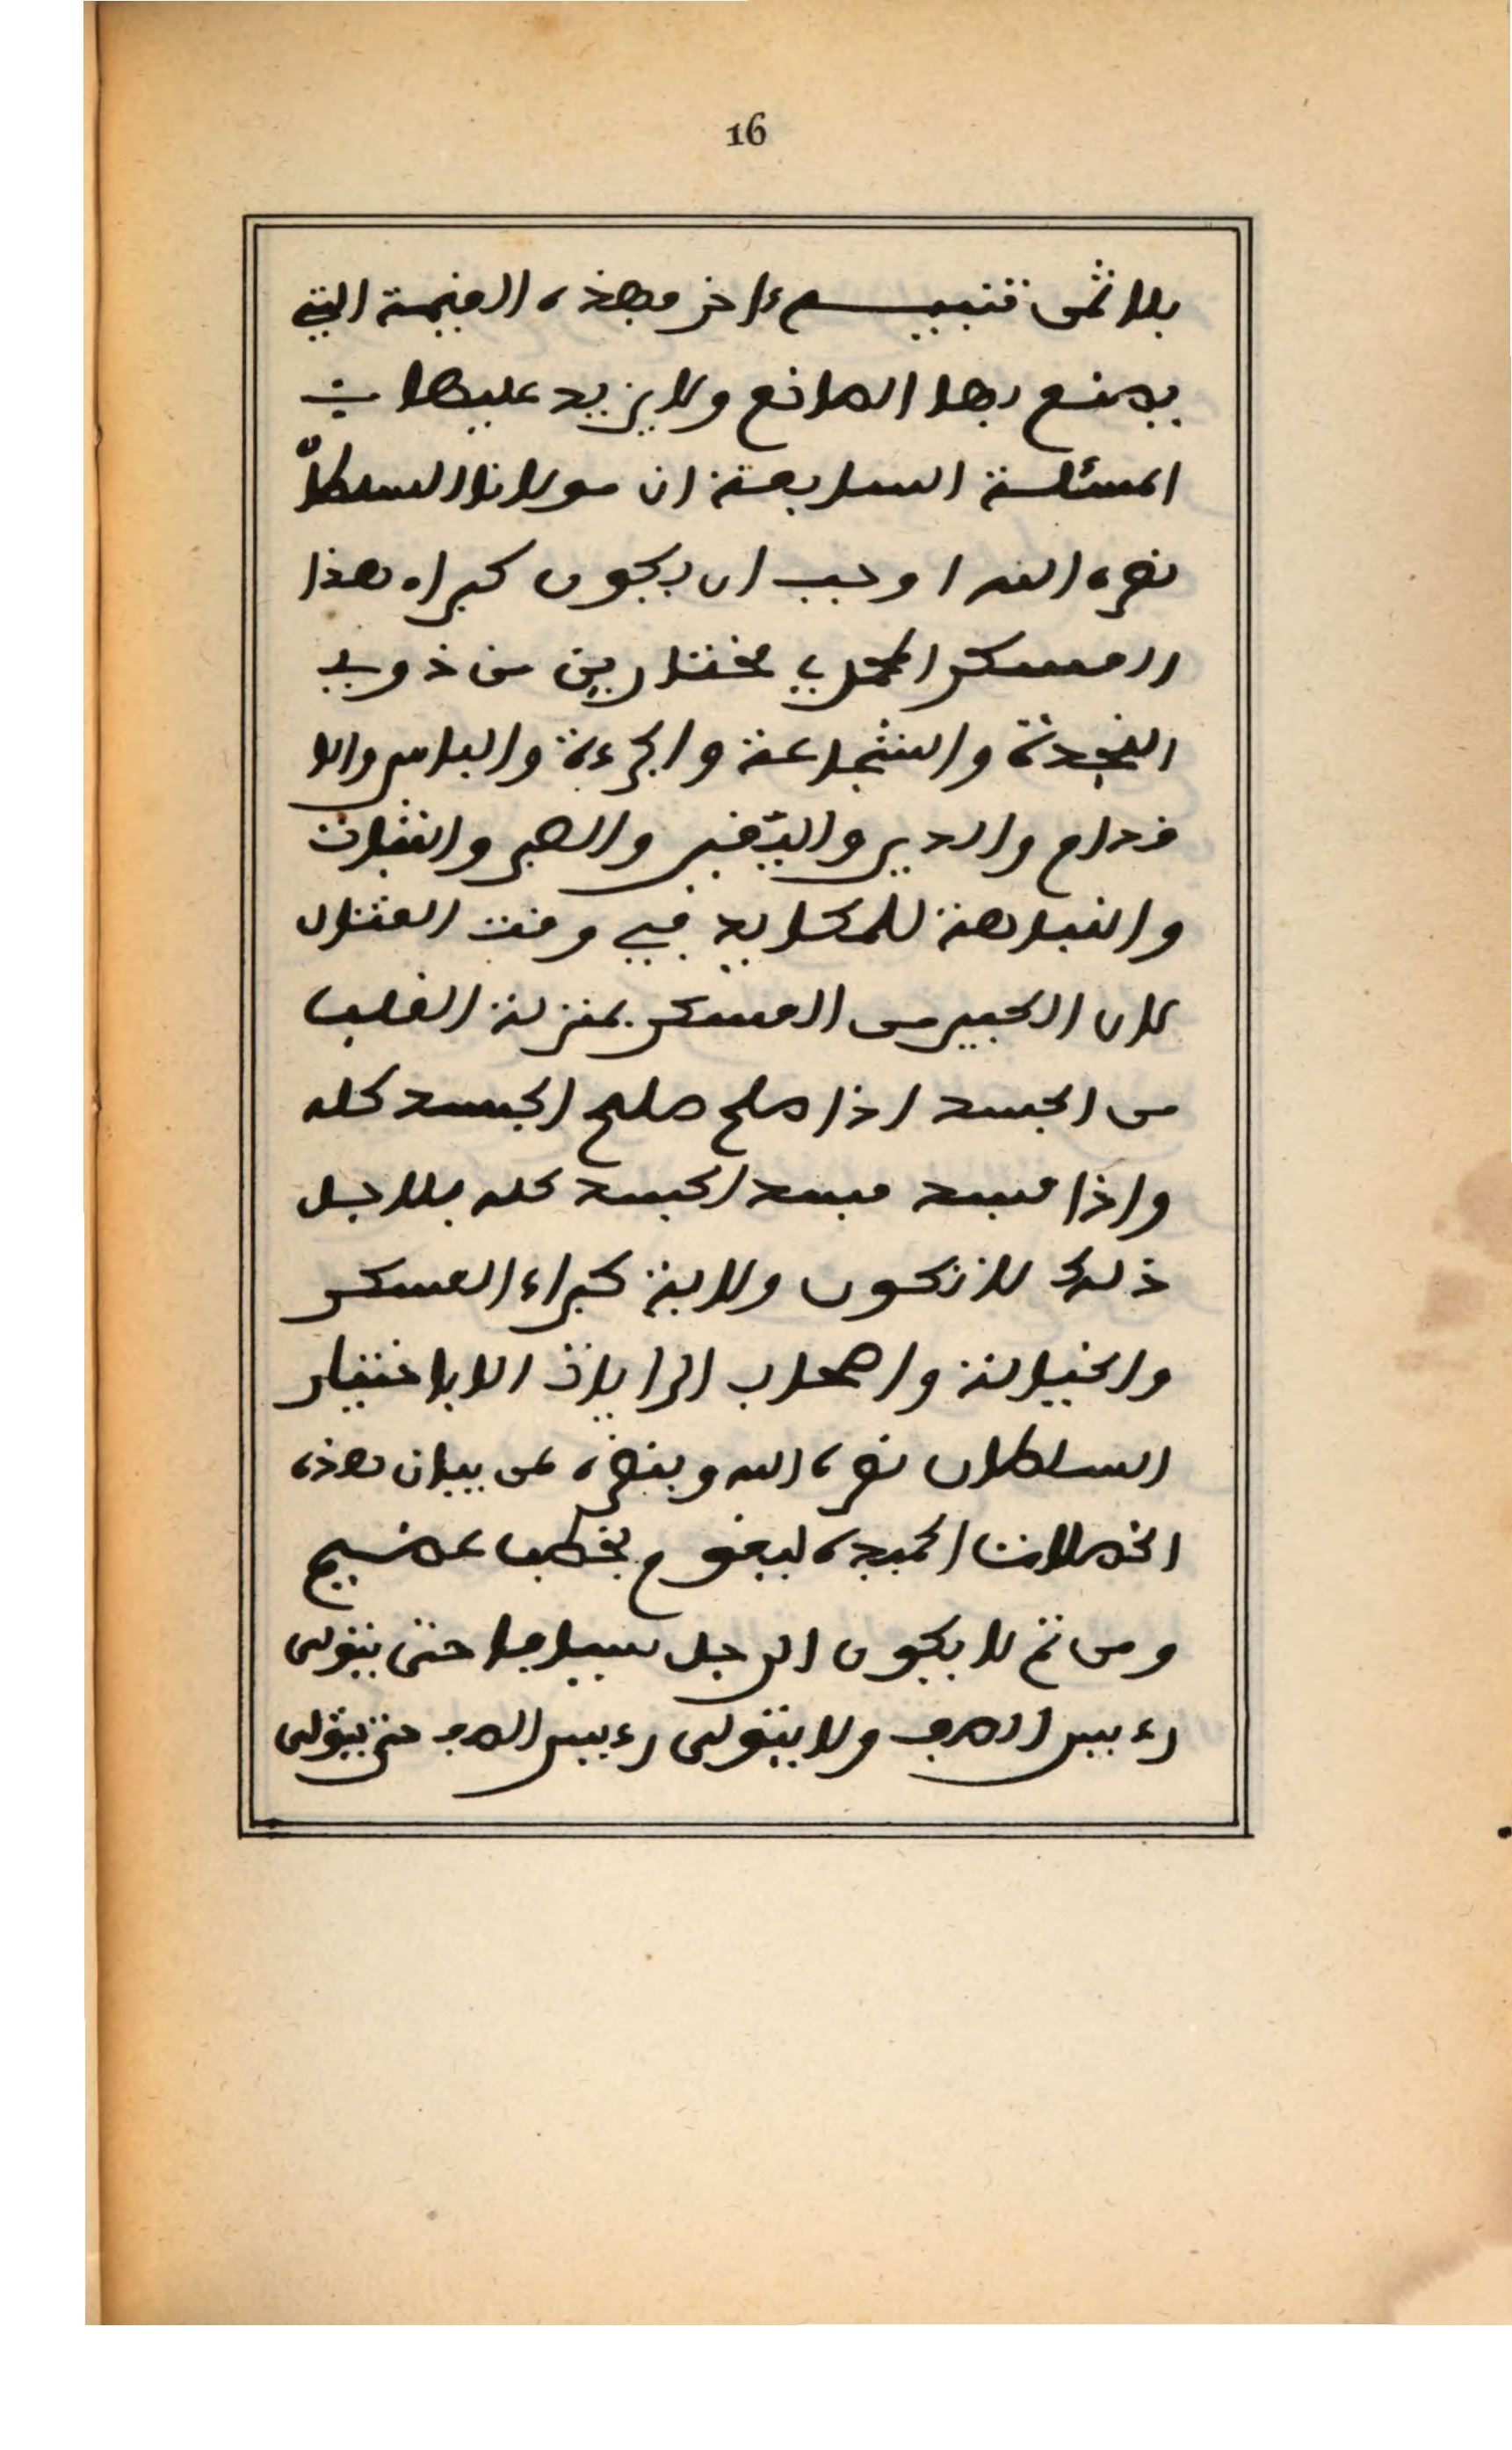 16
بلا ثمن تنبيـــه ءاخر وهذه القيمة التي
يصنع بها الصانع ولا يزيد عليها شيئ
المسئلة السابعة ان مولانا السلطان
نصره الله اوجب ان يكون كبراء هذا
العسكر المحمدي مختارين من ذوي
النجدة والشجاعة والجرءة والباس والا
فدام والدين واليقين والصبر والثبات
والنباهة للمكايد في وقت القتال
لان الكبير من العسكر بمنزلة القلب
من الجسد اذا صلح صلح الجسد كله
واذا فسد فسد الجسد كله فلاجل
ذلك لا تكون ولاية كبراء العسكر
والخيالة واصحاب الرايات الا باختيار
السلطان نصره الله وبنصره على بيان هذه
الخصلات الحميدة ليقوم بخطب عصيب
ومن ثم لا يكون الرجل سيافا حتى يتولى
رءيس الصف ولا يتولى رءيس الصف حتى يتولى